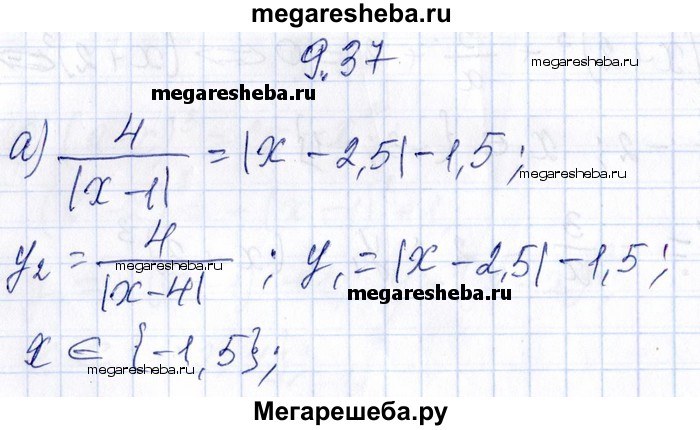 megaresheba.ru
9.37
megaresheba.ru
megaresheba.ru
а) 4/|x-1| = |x-2,5|-1,5;
megaresheba.ru
y₂ = 4/|x-4|; y₁ = |x-2,5|-1,5;
megaresheba.ru
megaresheba.ru
x ∈ {-1, 5};
megaresheba.ru
megaresheba.ru
Мегарешеба.ру